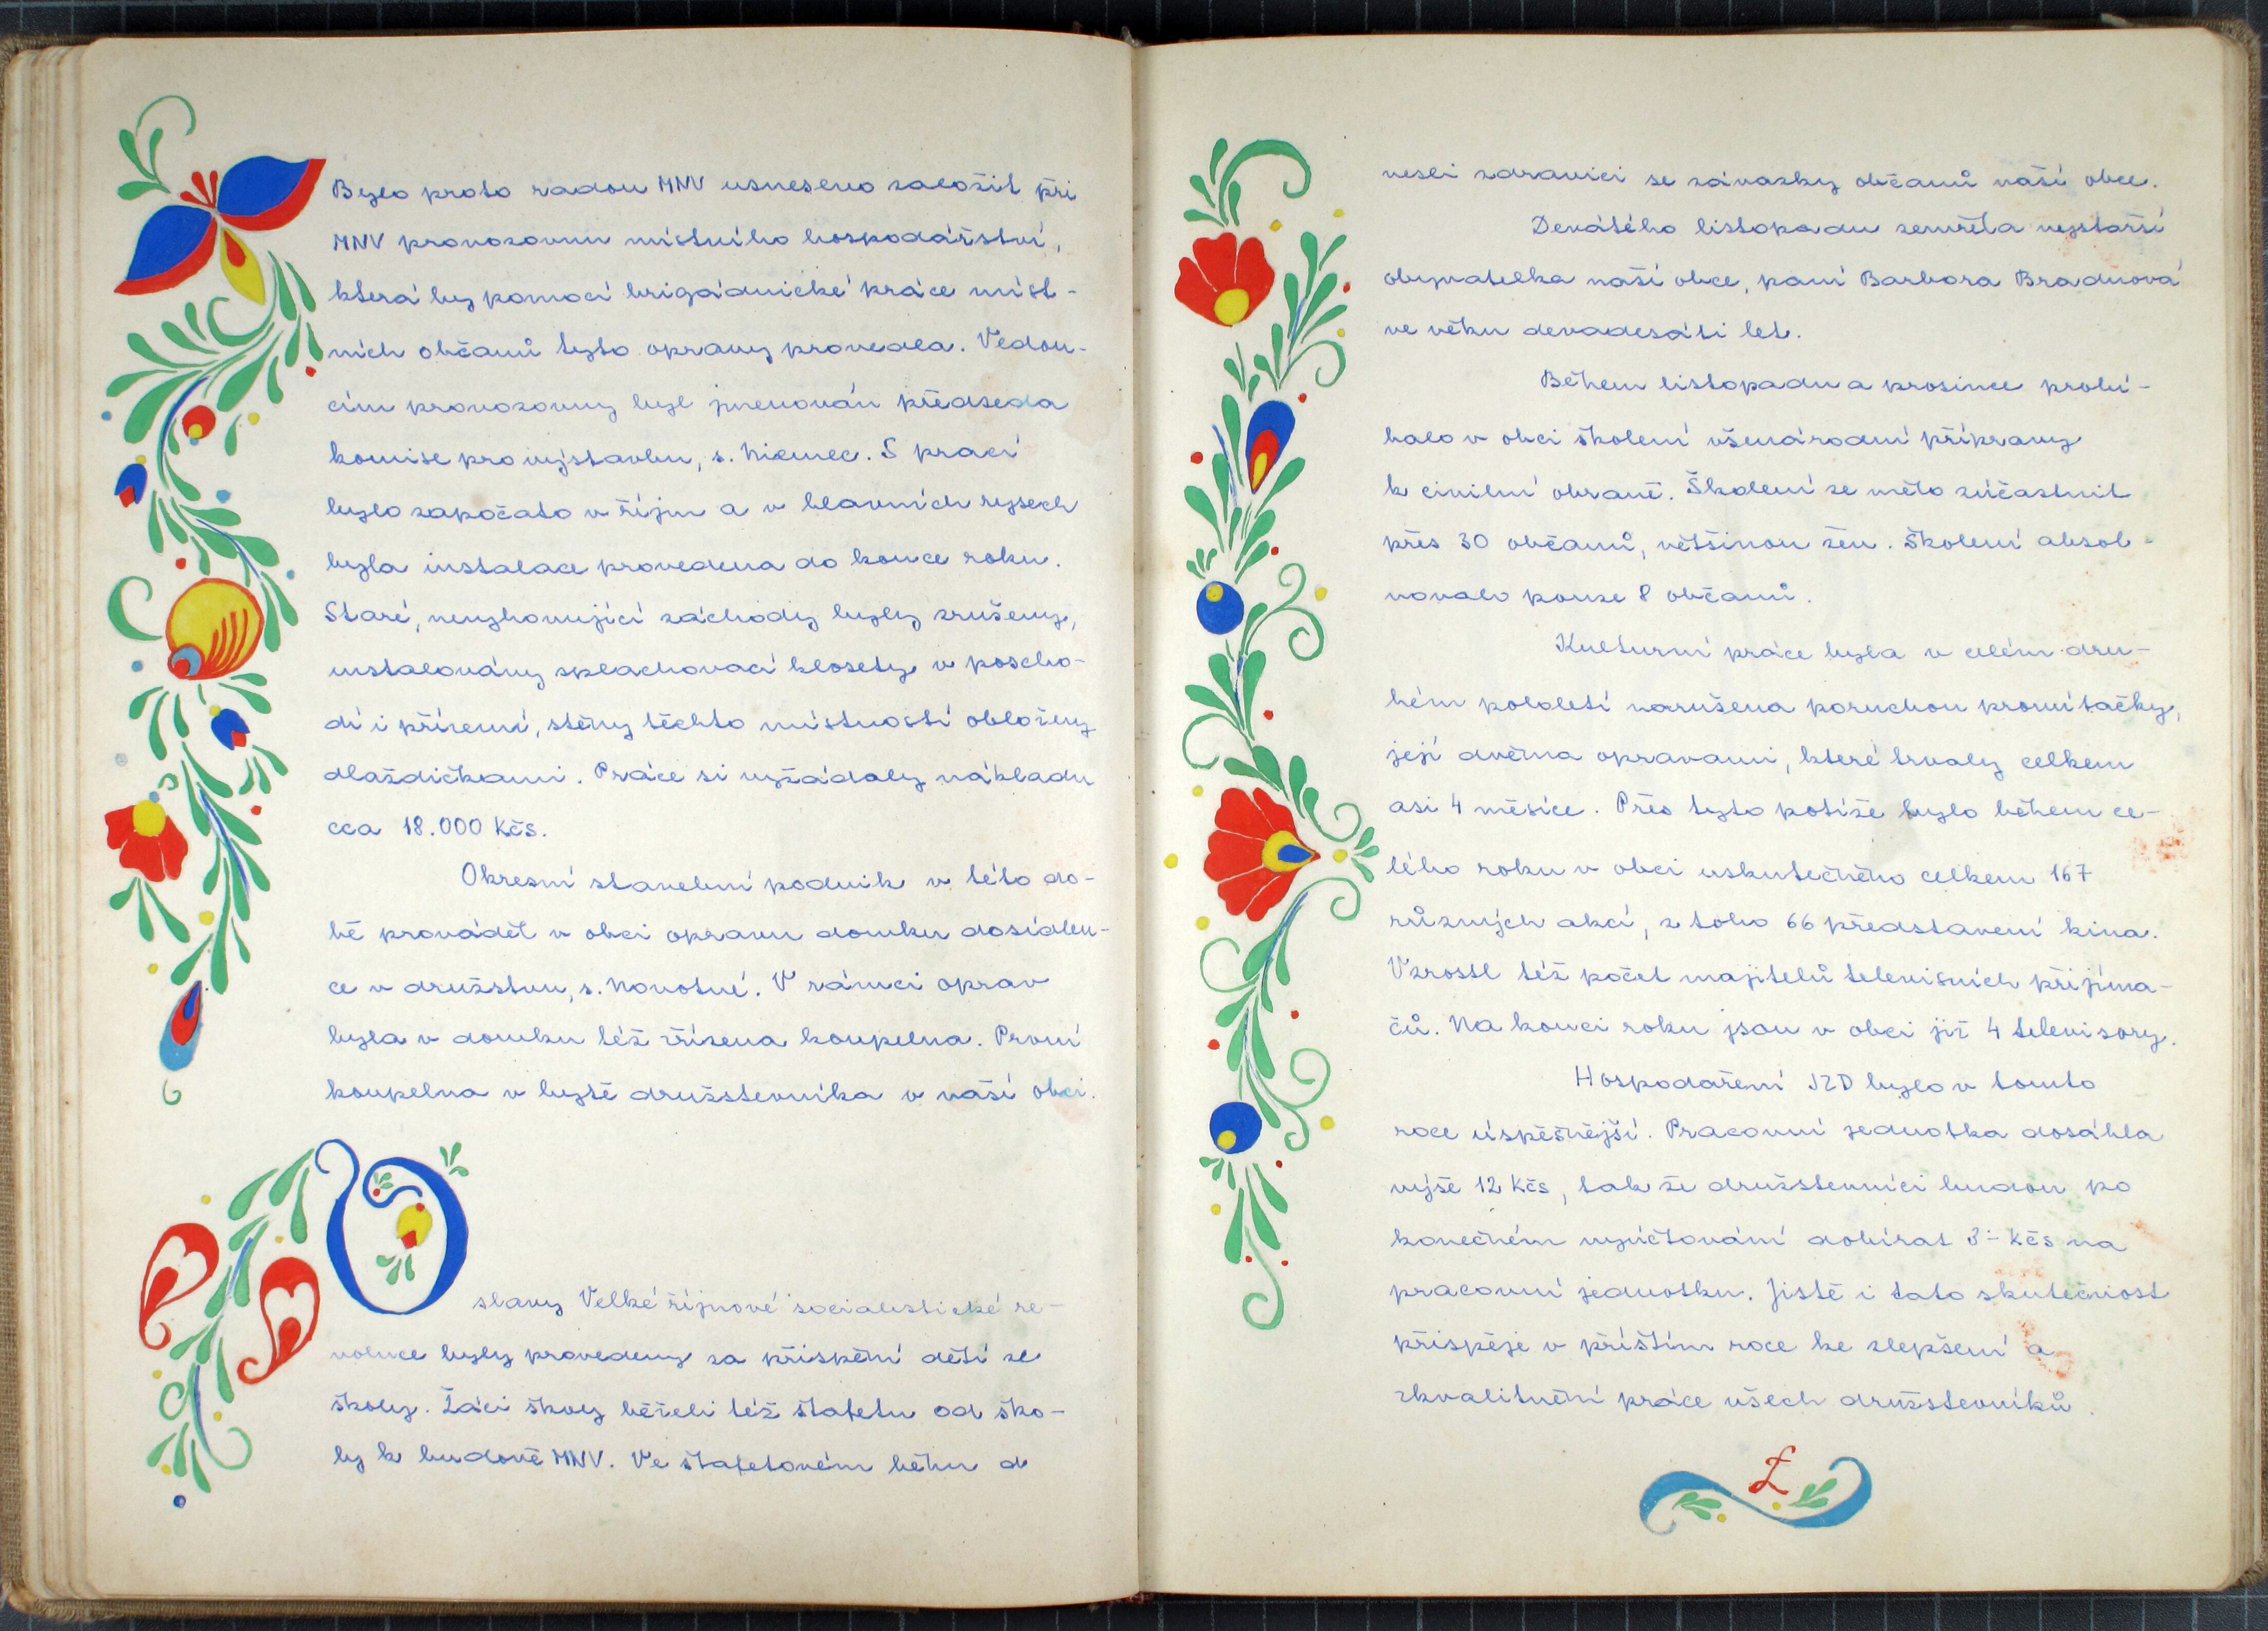 Bylo proto radou MNV usneseno založit při
MNV provozovnu místního hospodářství,
která by pomocí brigádnické práce míst-
ních občanů tyto opravy provedla. Vedou-
cím provozovny byl jmenován předseda
komise pro výstavbu, s. Niemec. S prací
bylo započato v říjnu a v hlavních rysech
byla instalace provedena do konce roku.
Staré, nevyhovující záchody byly zrušeny,
instalovány splachovací klosety v poscho-
dí i přízemí, stěny těchto místností obloženy
dlaždičkami. Práce si vyžádaly nákladu
cca 18.000 Kčs.
Okresní stavební podnik v této do-
bě prováděl v obci opravu domku dosídlen-
ce v družstvu, s. Novotné. V rámci oprav
byla v domku též zřízena koupelna. První
koupelna v bytě družstevníka v naší obci.
Oslavy Velké říjnové socialistické re-
voluce byly provedeny za přispění dětí ze
školy. Žáci školy běželi též štafetu od ško-
ly k budově MNV. Ve štafetovém běhu d
nesli zdravici se závazky občanů naší obce.
Devátého listopadu zemřela nejstarší
obyvatelka naší obce, paní Barbora Bradnová
ve věku devadesáti let.
Během listopadu a prosince probí-
halo v obci školení všenárodní přípravy
k civilní obraně. Školení se mělo zúčastnit
přes 30 občanů, většinou žen. Školení absol-
vovalo pouze 8 občanů.
Kulturní práce byla v celém dru-
hém pololetí narušena poruchou promítačky,
její dvěma opravami, které trvaly celkem
asi 4 měsíce. Přes tyto potíže bylo během ce-
lého roku v obci uskutečněno celkem 167
různých akcí, z toho 66 představení kina.
Vzrostl též počet majitelů televisních přijíma-
čů. Na konci roku jsou v obci již 4 televisory.
Hospodaření JZD bylo v tomto
roce úspěšnější. Pracovní jednotka dosáhla
výše 12 Kčs, tak že družstevníci budou po
konečném vyúčtování dobírat 3.- Kčs na
pracovní jednotku. Jistě i tato skutečnost
přispěje v příštím roce ke zlepšení a
zkvalitnění práce všech družstevníků.